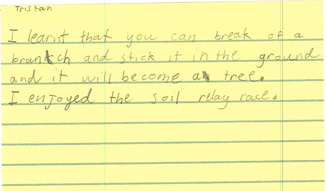 Tristan
I learnt that you can break of a
brantch and stick it in the ground
and it will become a tree.
I enjoyed the soil relay race.